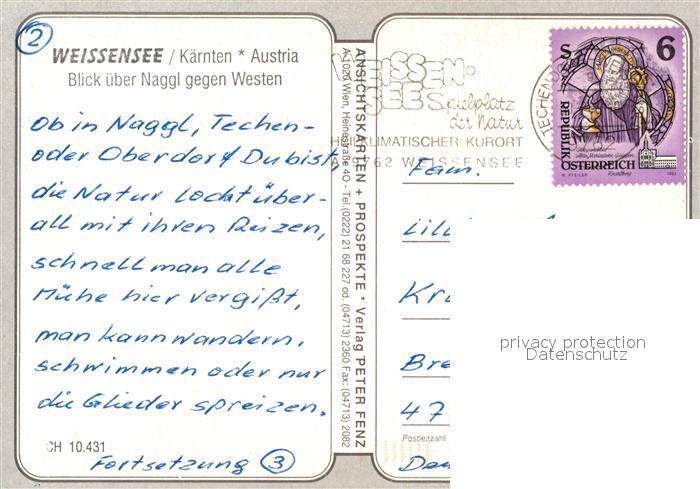 2
WEISSENSEE / Kärnten * Austria
Blick über Naggl gegen Westen
Ob in Naggl, Techen-
oder Oberdorf Du bist,
die Natur lockt über-
all mit ihren Reizen,
schnell man alle
Mühe hier vergißt,
man kann wandern,
schwimmen oder nur
die Glieder spreizen.
CH 10.431
Fortsetzung 3
ANSICHTSKARTEN + PROSPEKTE * Verlag PETER FENZ
A-1020 Wien, Heinestraße 40 - Tel. (0222) 21 68 227 od. (04713) 2360 Fax: (04713) 2082
WEISSEN-
SEE Spielplatz
der Natur
HEILKLIMATISCHER KURORT
9762 WEISSENSEE
S 6
REPUBLIK
ÖSTERREICH
1993
Fam.
Kr
Bre
47
Postleitzahl
privacy protection
Datenschutz